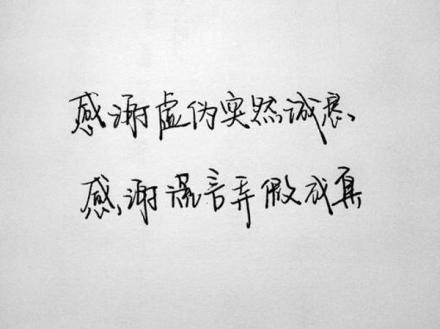 感谢虚伪突然诚恳、
感谢谎言弄假成真